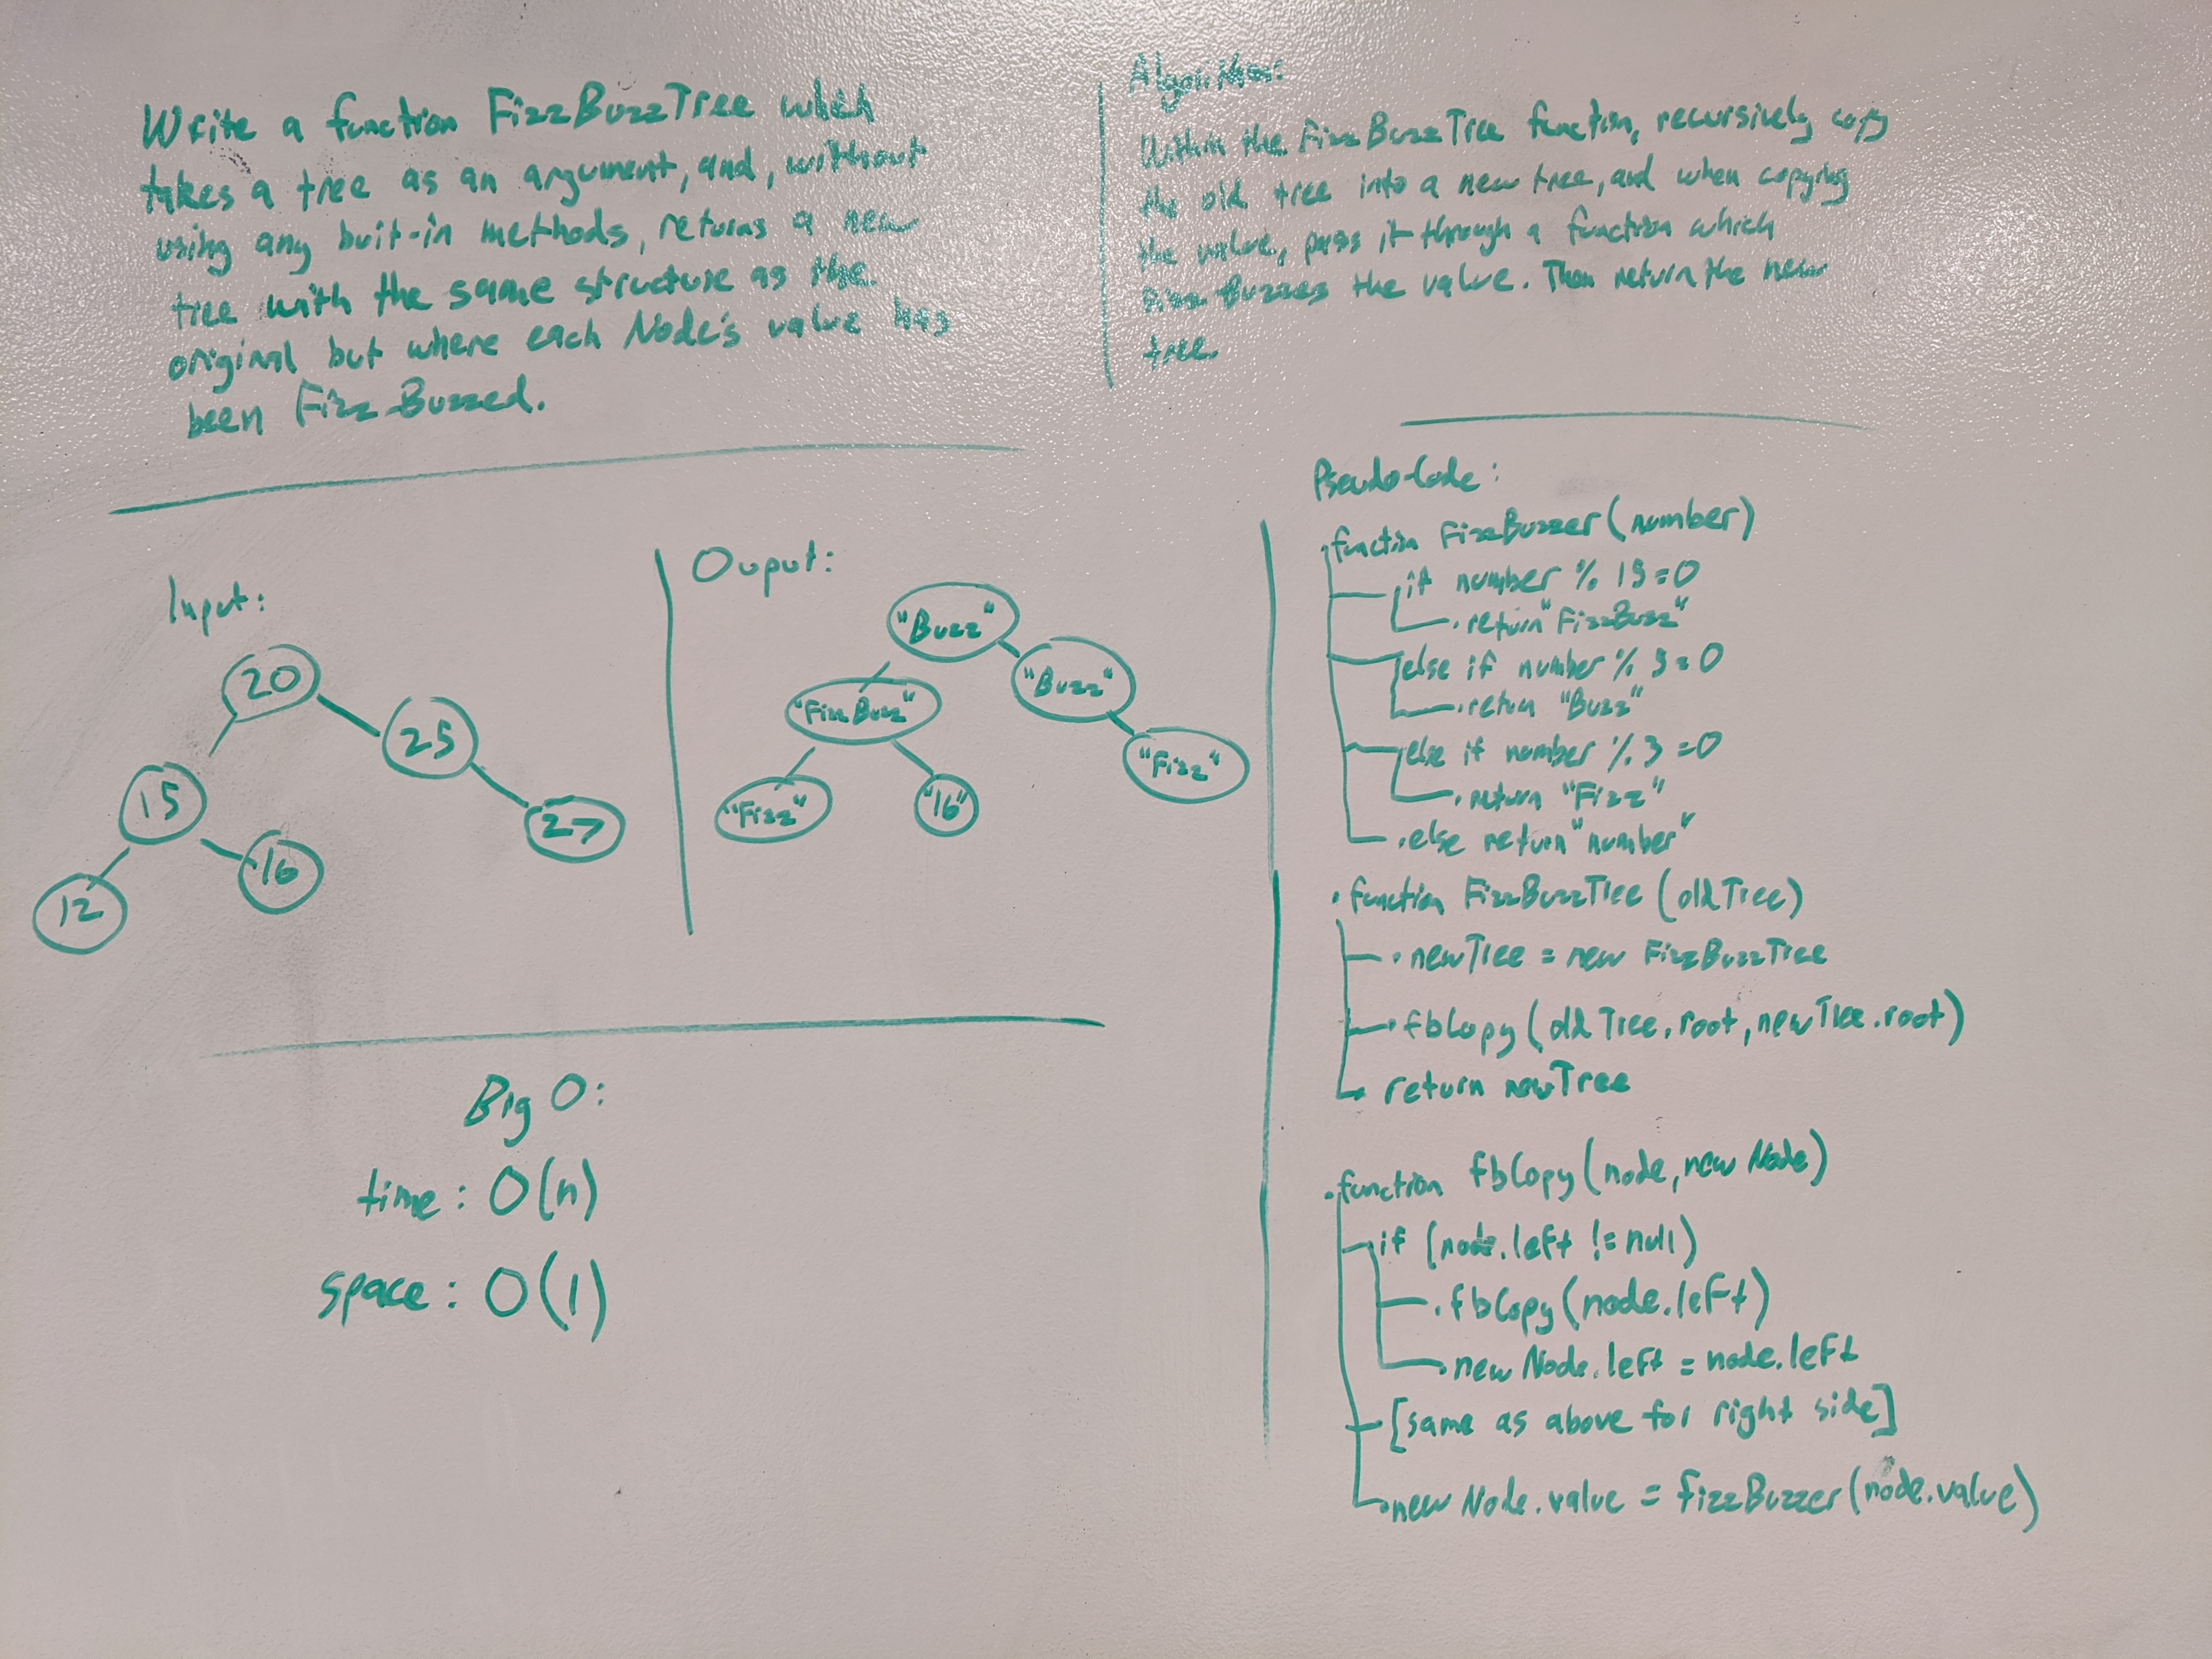 Write a function FizzBuzzTree which
takes a tree as an argument, and, without
using any buit-in methods, returns a new
tree with the same structure as the
original but where each Node's value has
been Fizz Buzzed.
Algorithm:
Within the FizzBuzzTree function, recursively copy
the old tree into a new tree, and when copying
the value, pass it through a function which
Fizz Buzzes the value. Then return the new
tree.
Input:
20
25
15
27
16
12
Ouput:
"Buzz"
"Buzz"
"Fizz Buzz"
"Fizz"
"Fizz"
"16"
Big O:
time: O(n)
space: O(1)
Pseudo-Code:
function FizzBuzzer (number)
if number % 15=0
return "FizzBuzz"
else if number % 5=0
return "Buzz"
else if number % 3=0
return "Fizz"
else return "number"
function FizzBuzzTree (oldTree)
newTree = new FizzBuzzTree
fbCopy (oldTree.root, newTree.root)
return newTree
function fbCopy (node, newNode)
if (node.left != null)
fbCopy (node.left)
newNode.left = node.left
[same as above for right side]
newNode.value = fizzBuzzer(node.value)